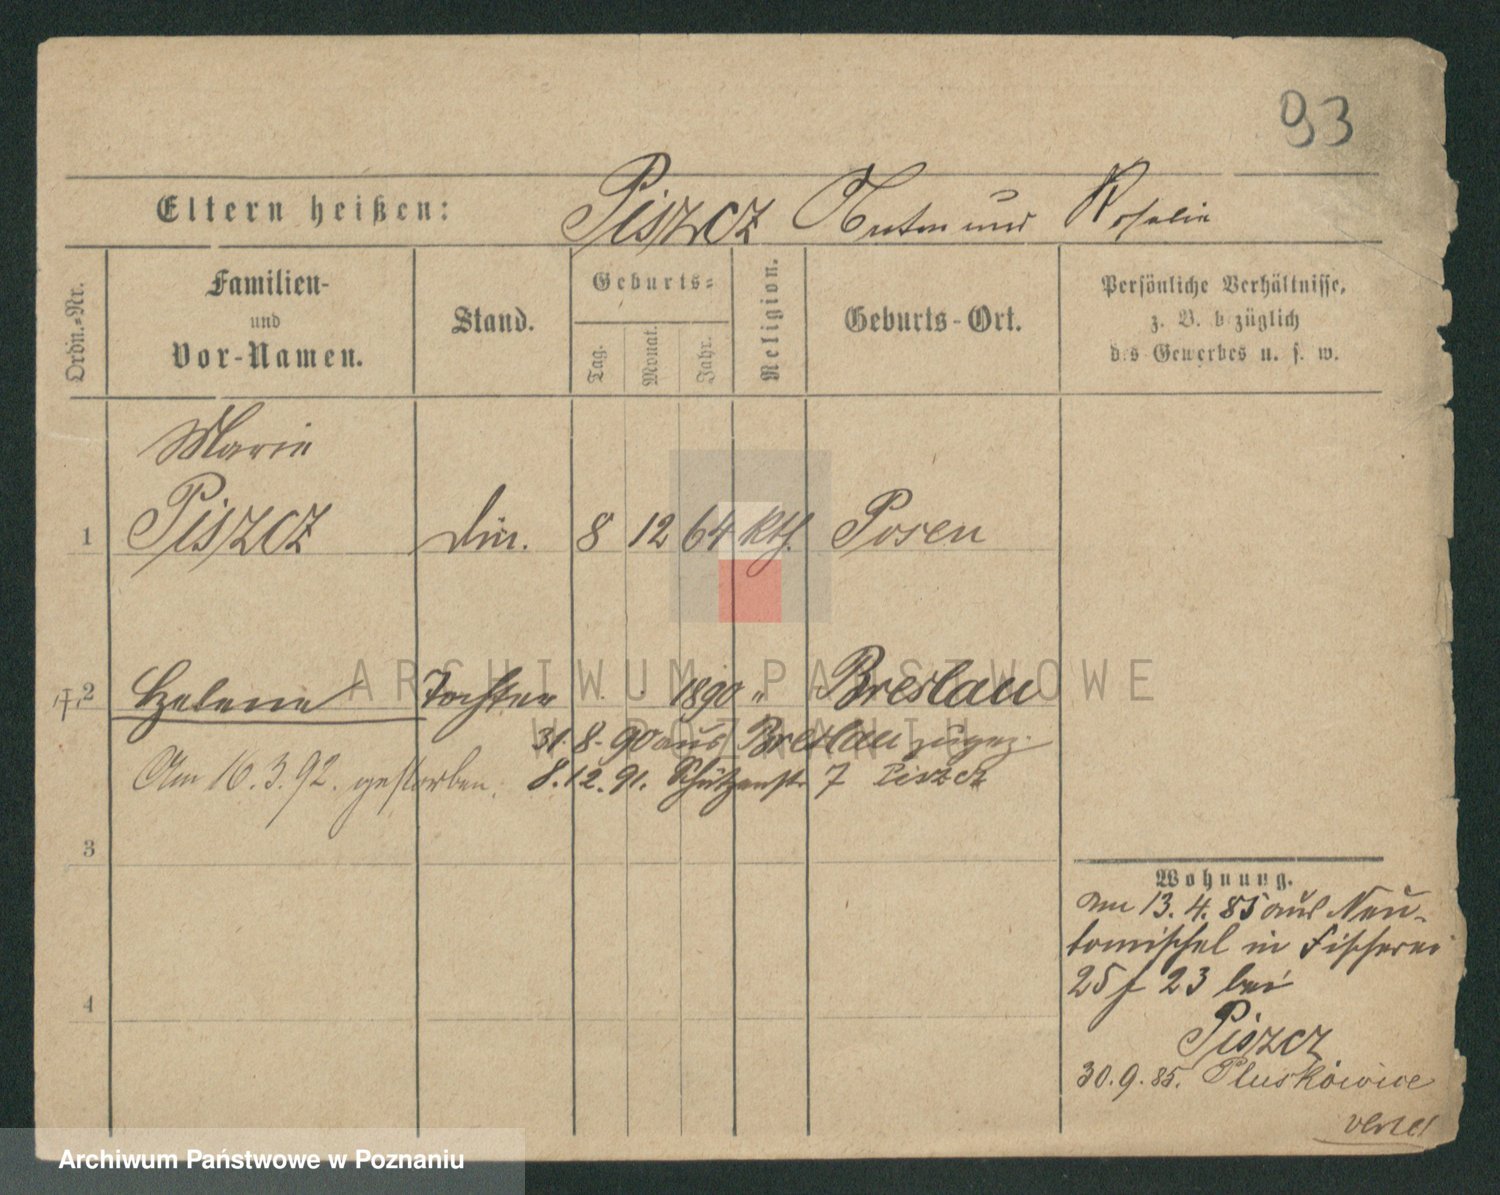 93
Eltern heißen: Piszcz Anton und Rosalie
Ordn.-Nr.
Familien-
und
Vor-Namen.
Stand.
Geburts-
Tag.
Monat.
Jahr.
Religion.
Geburts-Ort.
Persönliche Verhältnisse,
z. B. bezüglich
des Gewerbes u. s. w.
Marie
1 Piszcz Din. 8 12 64 kth. Posen
2 Helene Tochter 1890 " Breslau
31.8.90 aus Breslau zugez.
Am 16.3.92. gestorben. 8.12.91. Schützenstr 7 Piszcz
3
4
Wohnung.
Am 13.4.85 aus Neu-
tomischel in Fischerei
25 f 23 bei
Piszcz
30.9.85. Pluskowice
ARCHIWUM PAŃSTWOWE
W POZNANIU
Archiwum Państwowe w Poznaniu